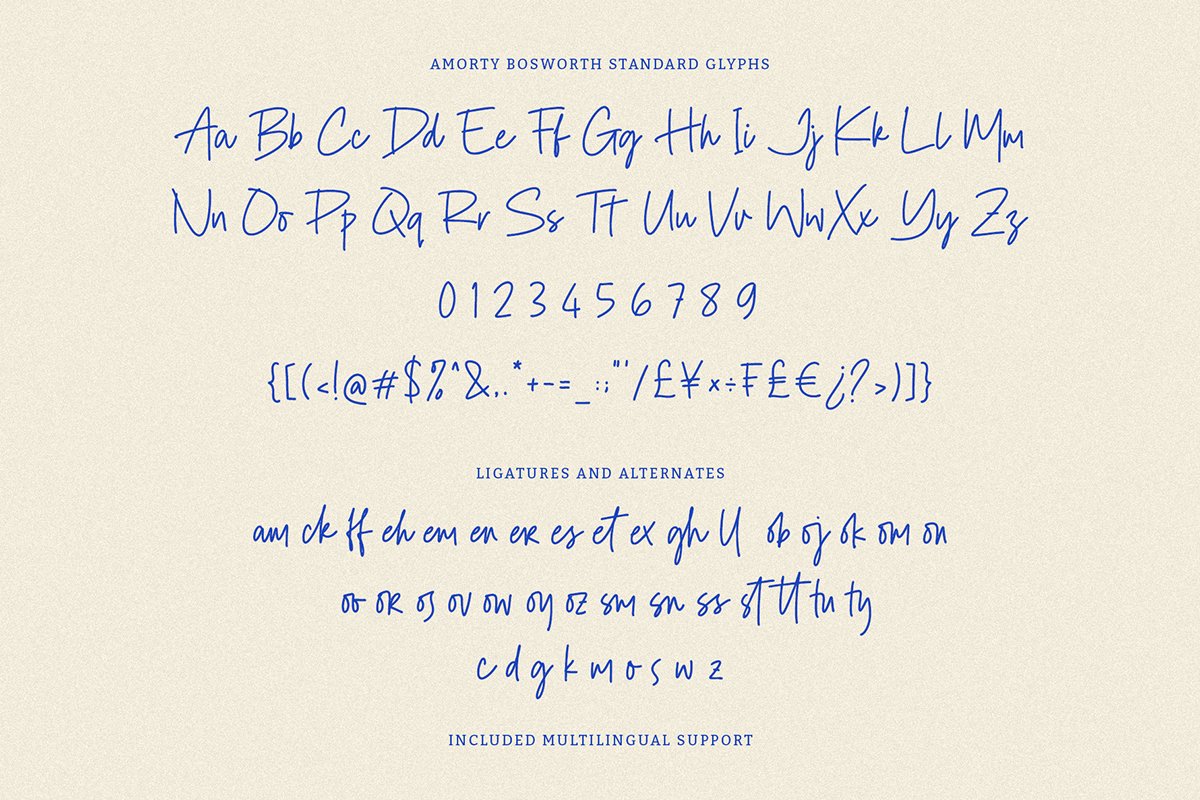 AMORTY BOSWORTH STANDARD GLYPHS
Aa Bb Cc Dd Ee Ff Gg Hh Ii Jj Kk Ll Mm
Nn Oo Pp Qq Rr Ss Tt Uu Vv Ww Xx Yy Zz
0 1 2 3 4 5 6 7 8 9
{[(<!@#$%^&,.*+-=_:;"'/£¥×÷₣₤€¿?>)]}
LIGATURES AND ALTERNATES
am ck ff eh em en er es et ex gh ll ob oj ok om on
oo or os ov ow oy oz sm sn ss st tt tu ty
c d g k m o s w z
INCLUDED MULTILINGUAL SUPPORT